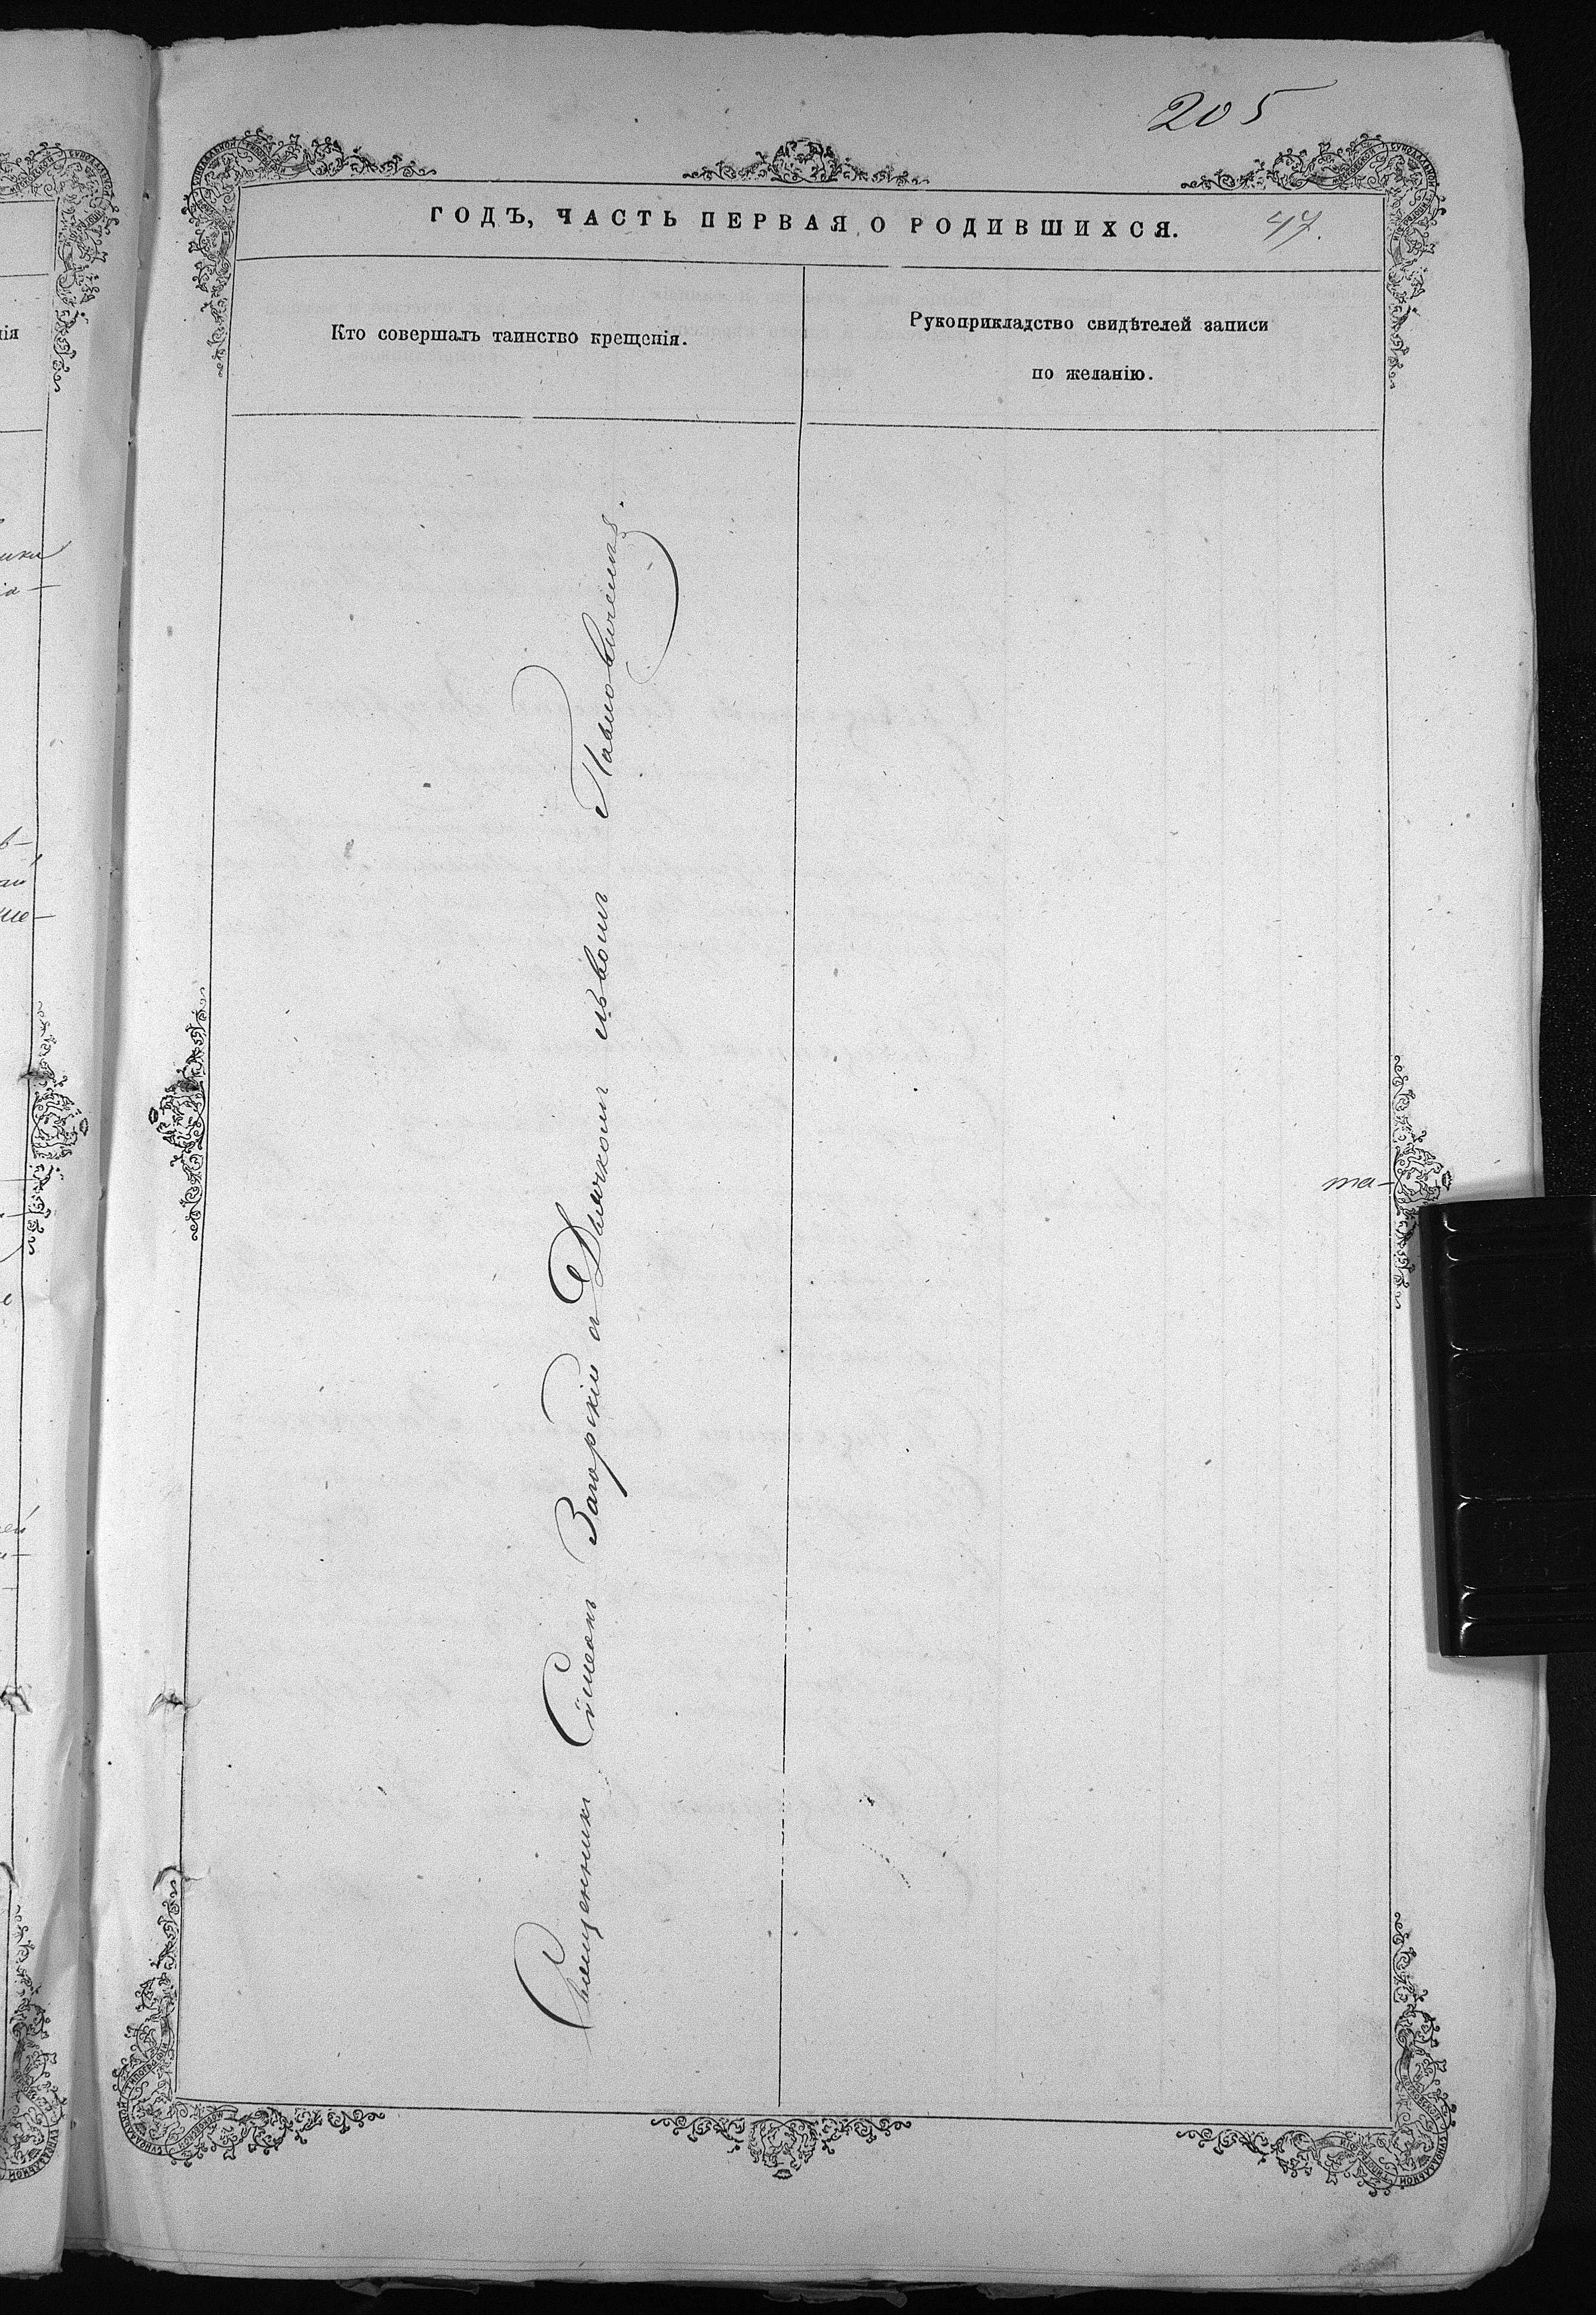 205
ГОДЪ, ЧАСТЬ ПЕРВАЯ, О РОДИВШИХСЯ. 47.
Кто совершалъ таинство крещенія.
Рукоприкладство свидѣтелей записи
по желанію.
Священникъ Сѵмеонъ Загорскій съ Дьячкомъ Павловичемъ.
та-